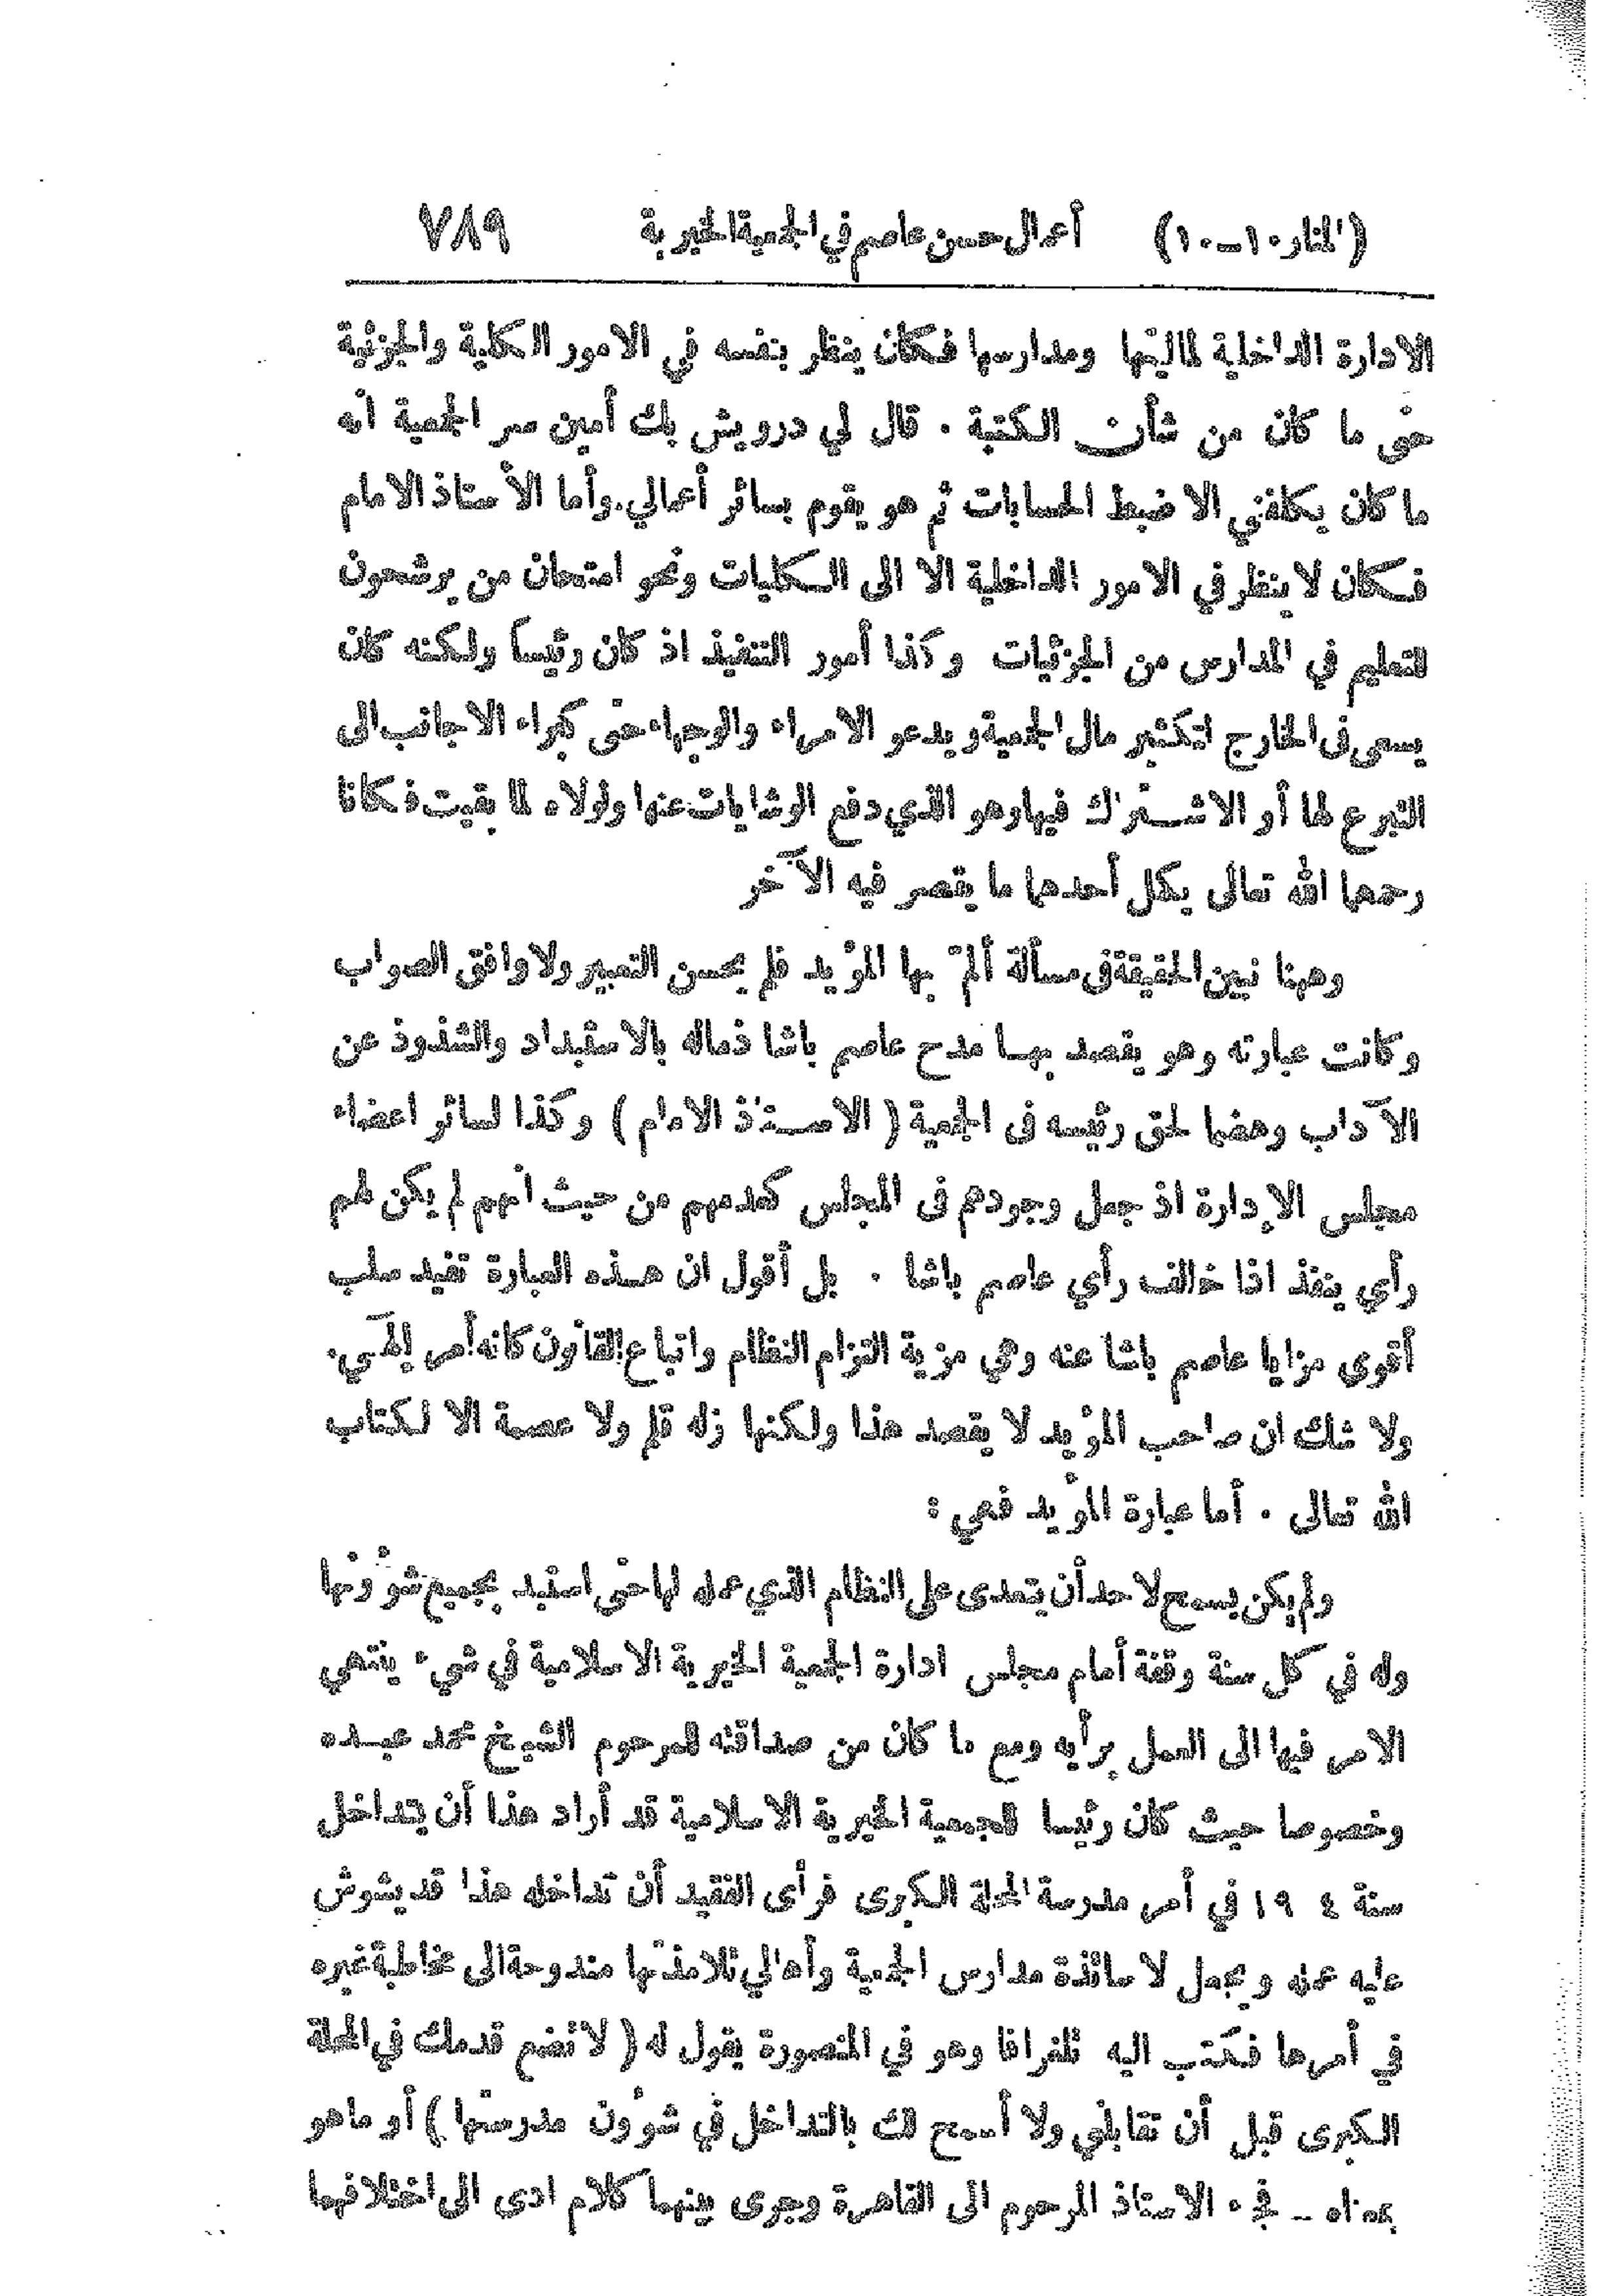 (المنار ١٠ــ١٠) أعمال حسن عاصم في الجمعية الخيرية ٧٨٩
الادارة الداخلية لماليتها ومدارسها فكان ينظر بنفسه في الامور الكلية والجزئية
حتى ما كان من شأن الكتبة ٠ قال لي درويش بك أمين سر الجمعية انه
ما كان يكلفني الا ضبط الحسابات ثم هو يقوم بسائر أعمالي. وأما الأستاذ الامام
فكان لا ينظر في الامور الداخلية الا الى الكليات ونحو امتحان من يرشحون
للتعليم في المدارس من الجزئيات وكذا أمور التنفيذ اذ كان رئيساً ولكنه كان
يسعى في الخارج لتكثير مال الجمعية ويدعو الامراء والوجهاء حتى كبراء الاجانب الى
التبرع لها أو الاشتراك فيها وهو الذي دفع الوشايات عنها ولولاه لما بقيت فكانا
رحمهما الله تعالى يكمل أحدهما ما يقصر فيه الآخر
وههنا نبين الحقيقة في مسألة ألمّ بها المؤيد فلم يحسن التعبير ولا وافق الصواب
وكانت عبارته وهو يقصد بها مدح عاصم باشا ذماله بالاستبداد والشذوذ عن
الآداب وهضما لحق رئيسه في الجمعية (الاستاذ الامام) وكذا لسائر اعضاء
مجلس الإدارة اذ جعل وجودهم في المجلس كعدمهم من حيث انهم لم يكن لهم
رأي ينفذ اذا خالف رأي عاصم باشا ٠ بل أقول ان هذه العبارة تفيد سلب
أقوى مزايا عاصم باشا عنه وهي مزية التزام النظام واتباع القانون كانه أمر إلهي.
ولا شك ان صاحب المؤيد لا يقصد هذا ولكنها زله قلم ولا عصمة الا لكتاب
الله تعالى ٠ أما عبارة المؤيد فهي :
ولم يكن يسمح لاحد أن يتعدى على النظام الذي عمله لها حتى استبد بجميع شؤونها
وله في كل سنة وقفة أمام مجلس ادارة الجمعية الخيرية الاسلامية في شيء ينتهي
الامر فيها الى العمل برأيه ومع ما كان من صداقته للمرحوم الشيخ محمد عبده
وخصوصا حيث كان رئيسا للجمعية الخيرية الاسلامية قد أراد هذا أن يتداخل
سنة ١٩٠٤ في أمر مدرسة المحلة الكبرى فرأى الفقيد أن تداخله هذا قد يشوش
عليه عمله ويجعل لاساتذة مدارس الجمعية وأهالي تلامذتها مندوحة الى مخاطبة غيره
في أمرها فكتب اليه تلغرافا وهو في المنصورة يقول له ( لا تضع قدمك في المحلة
الكبرى قبل أن تقابلني ولا أسمح لك بالتداخل في شؤون مدرستها ) أو ما هو
بمعناه ــ فجاء الاستاذ المرحوم الى القاهرة وجرى بينهما كلام ادى الى اختلافهما